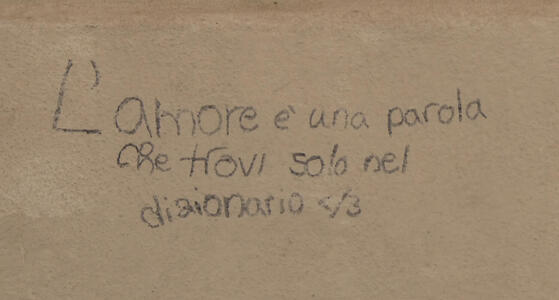 L'amore è una parola
che trovi solo nel
dizionario </3